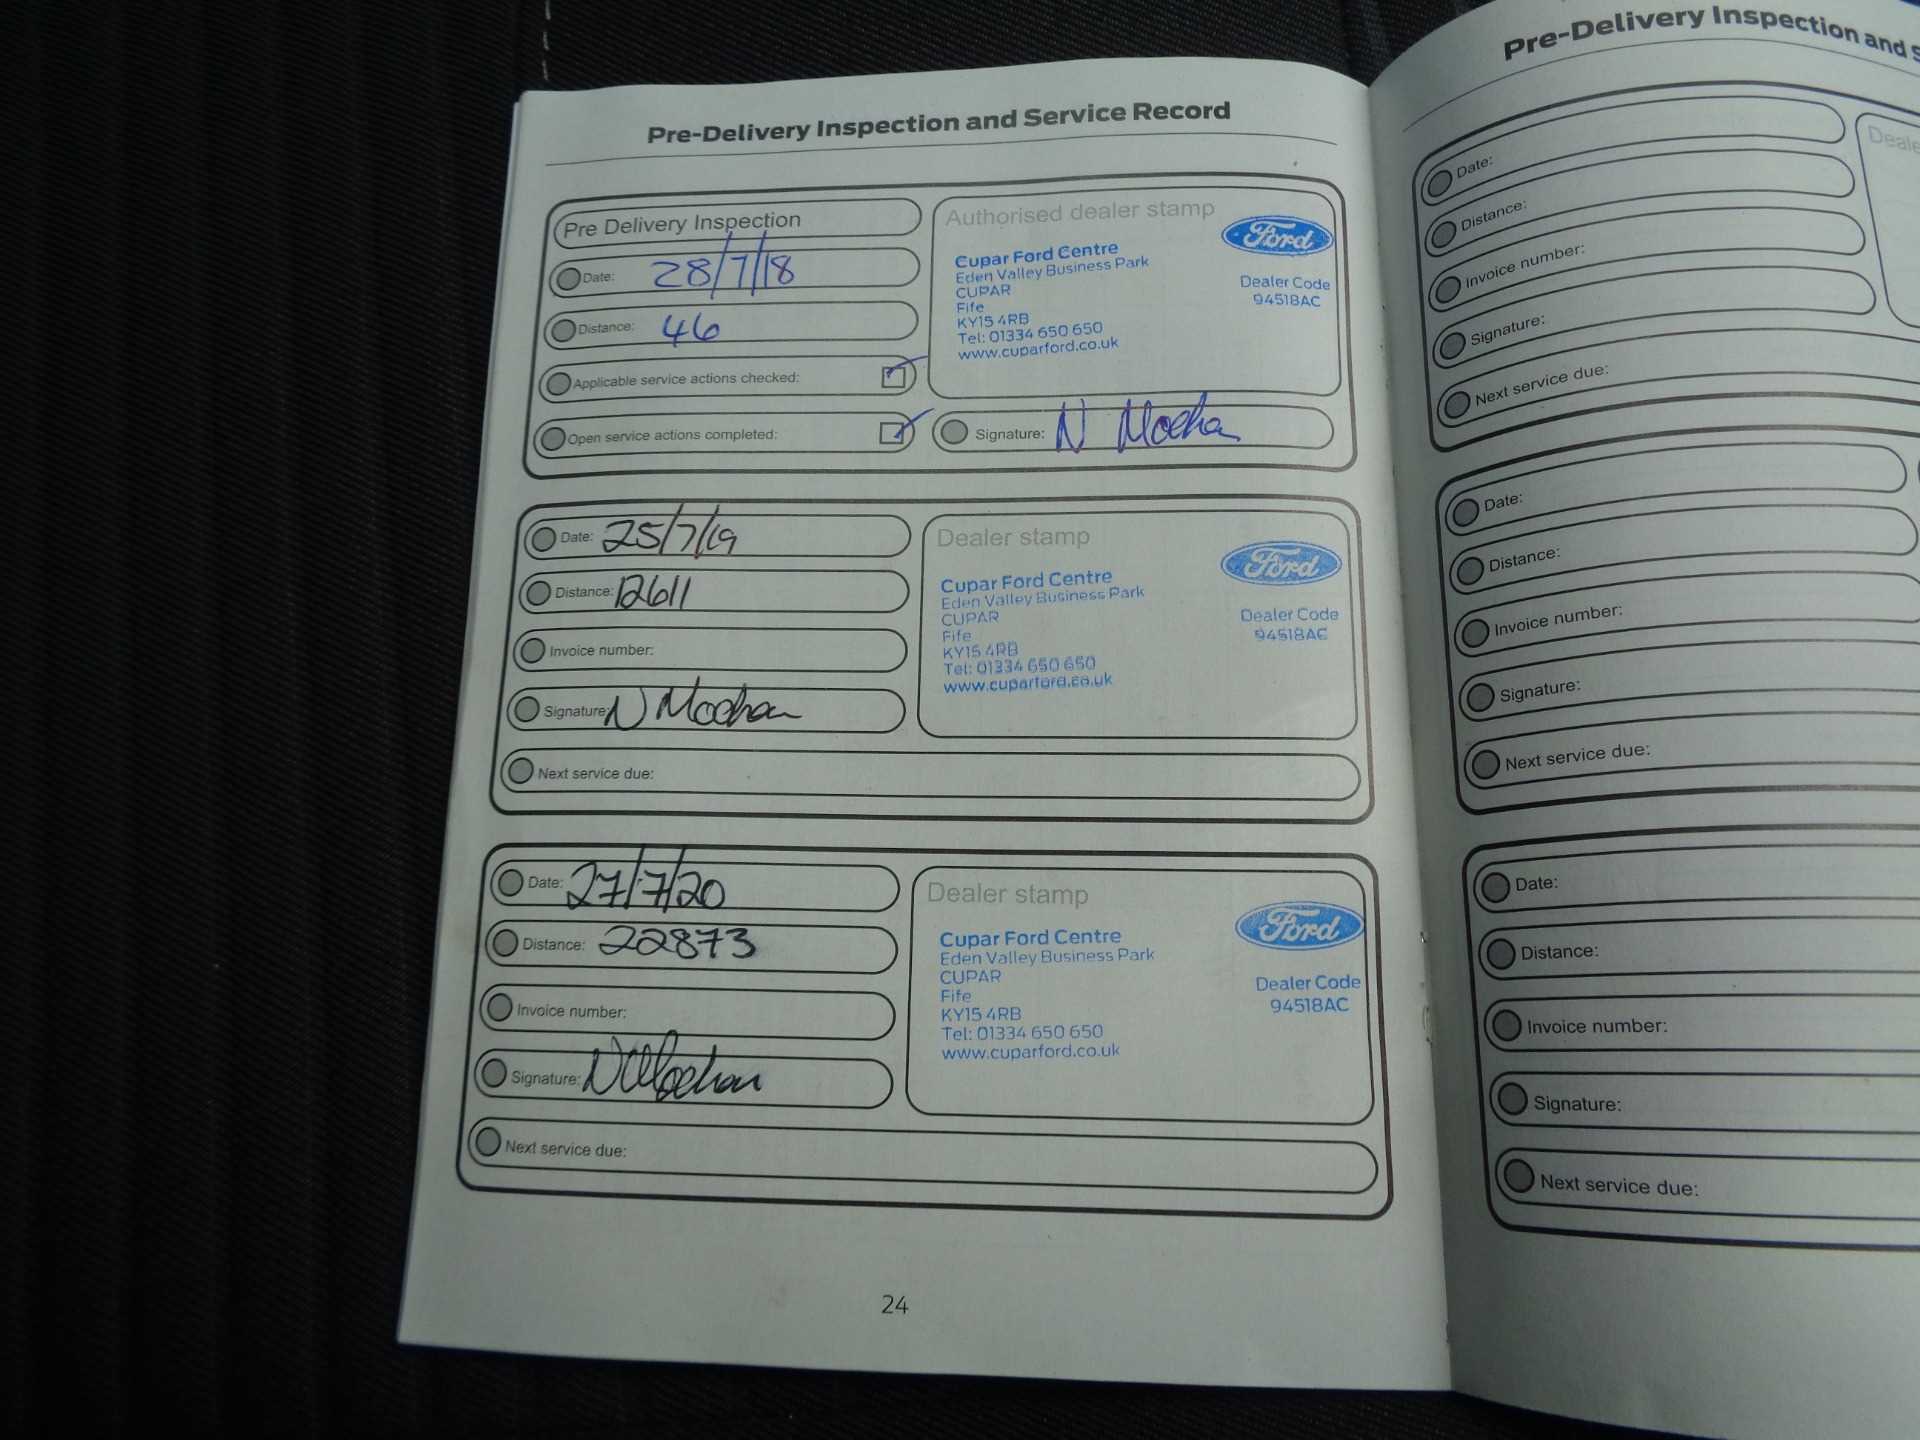 Pre-Delivery Inspection and Service Record
Pre Delivery Inspection
Date: 28/7/18
Distance: 46
Applicable service actions checked:
Open service actions completed:
Authorised dealer stamp
Ford
Cupar Ford Centre
Eden Valley Business Park
CUPAR
Fife
KY15 4RB
Tel: 01334 650 650
www.cuparford.co.uk
Dealer Code
94518AC
Signature: N
Date: 25/7/19
Distance: 12611
Invoice number:
Signature: N
Next service due:
Dealer stamp
Ford
Cupar Ford Centre
Eden Valley Business Park
CUPAR
Fife
KY15 4RB
Tel: 01334 650 650
www.cuparford.co.uk
Dealer Code
94518AC
Date: 27/7/20
Distance: 22873
Invoice number:
Signature:
Next service due:
Dealer stamp
Ford
Cupar Ford Centre
Eden Valley Business Park
CUPAR
Fife
KY15 4RB
Tel: 01334 650 650
www.cuparford.co.uk
Dealer Code
94518AC
24
Pre-Delivery Inspection and S
Date:
Distance:
Invoice number:
Signature:
Next service due:
Deale
Date:
Distance:
Invoice number:
Signature:
Next service due:
Date:
Distance:
Invoice number:
Signature:
Next service due: